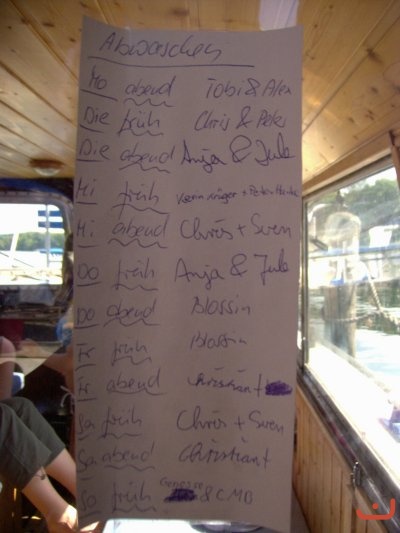 Abwaschen
Mo abend Tobi & Alex
Die früh Chris & Peter
Die abend Anja & Jule
Mi früh + Peter
Mi abend Chris + Sven
Do früh Anja & Jule
Do abend Blossin
Fr früh Blossin
Fr abend Christian +
Sa früh Chris + Sven
Sa abend Christian +
So früh Genosse & CMD